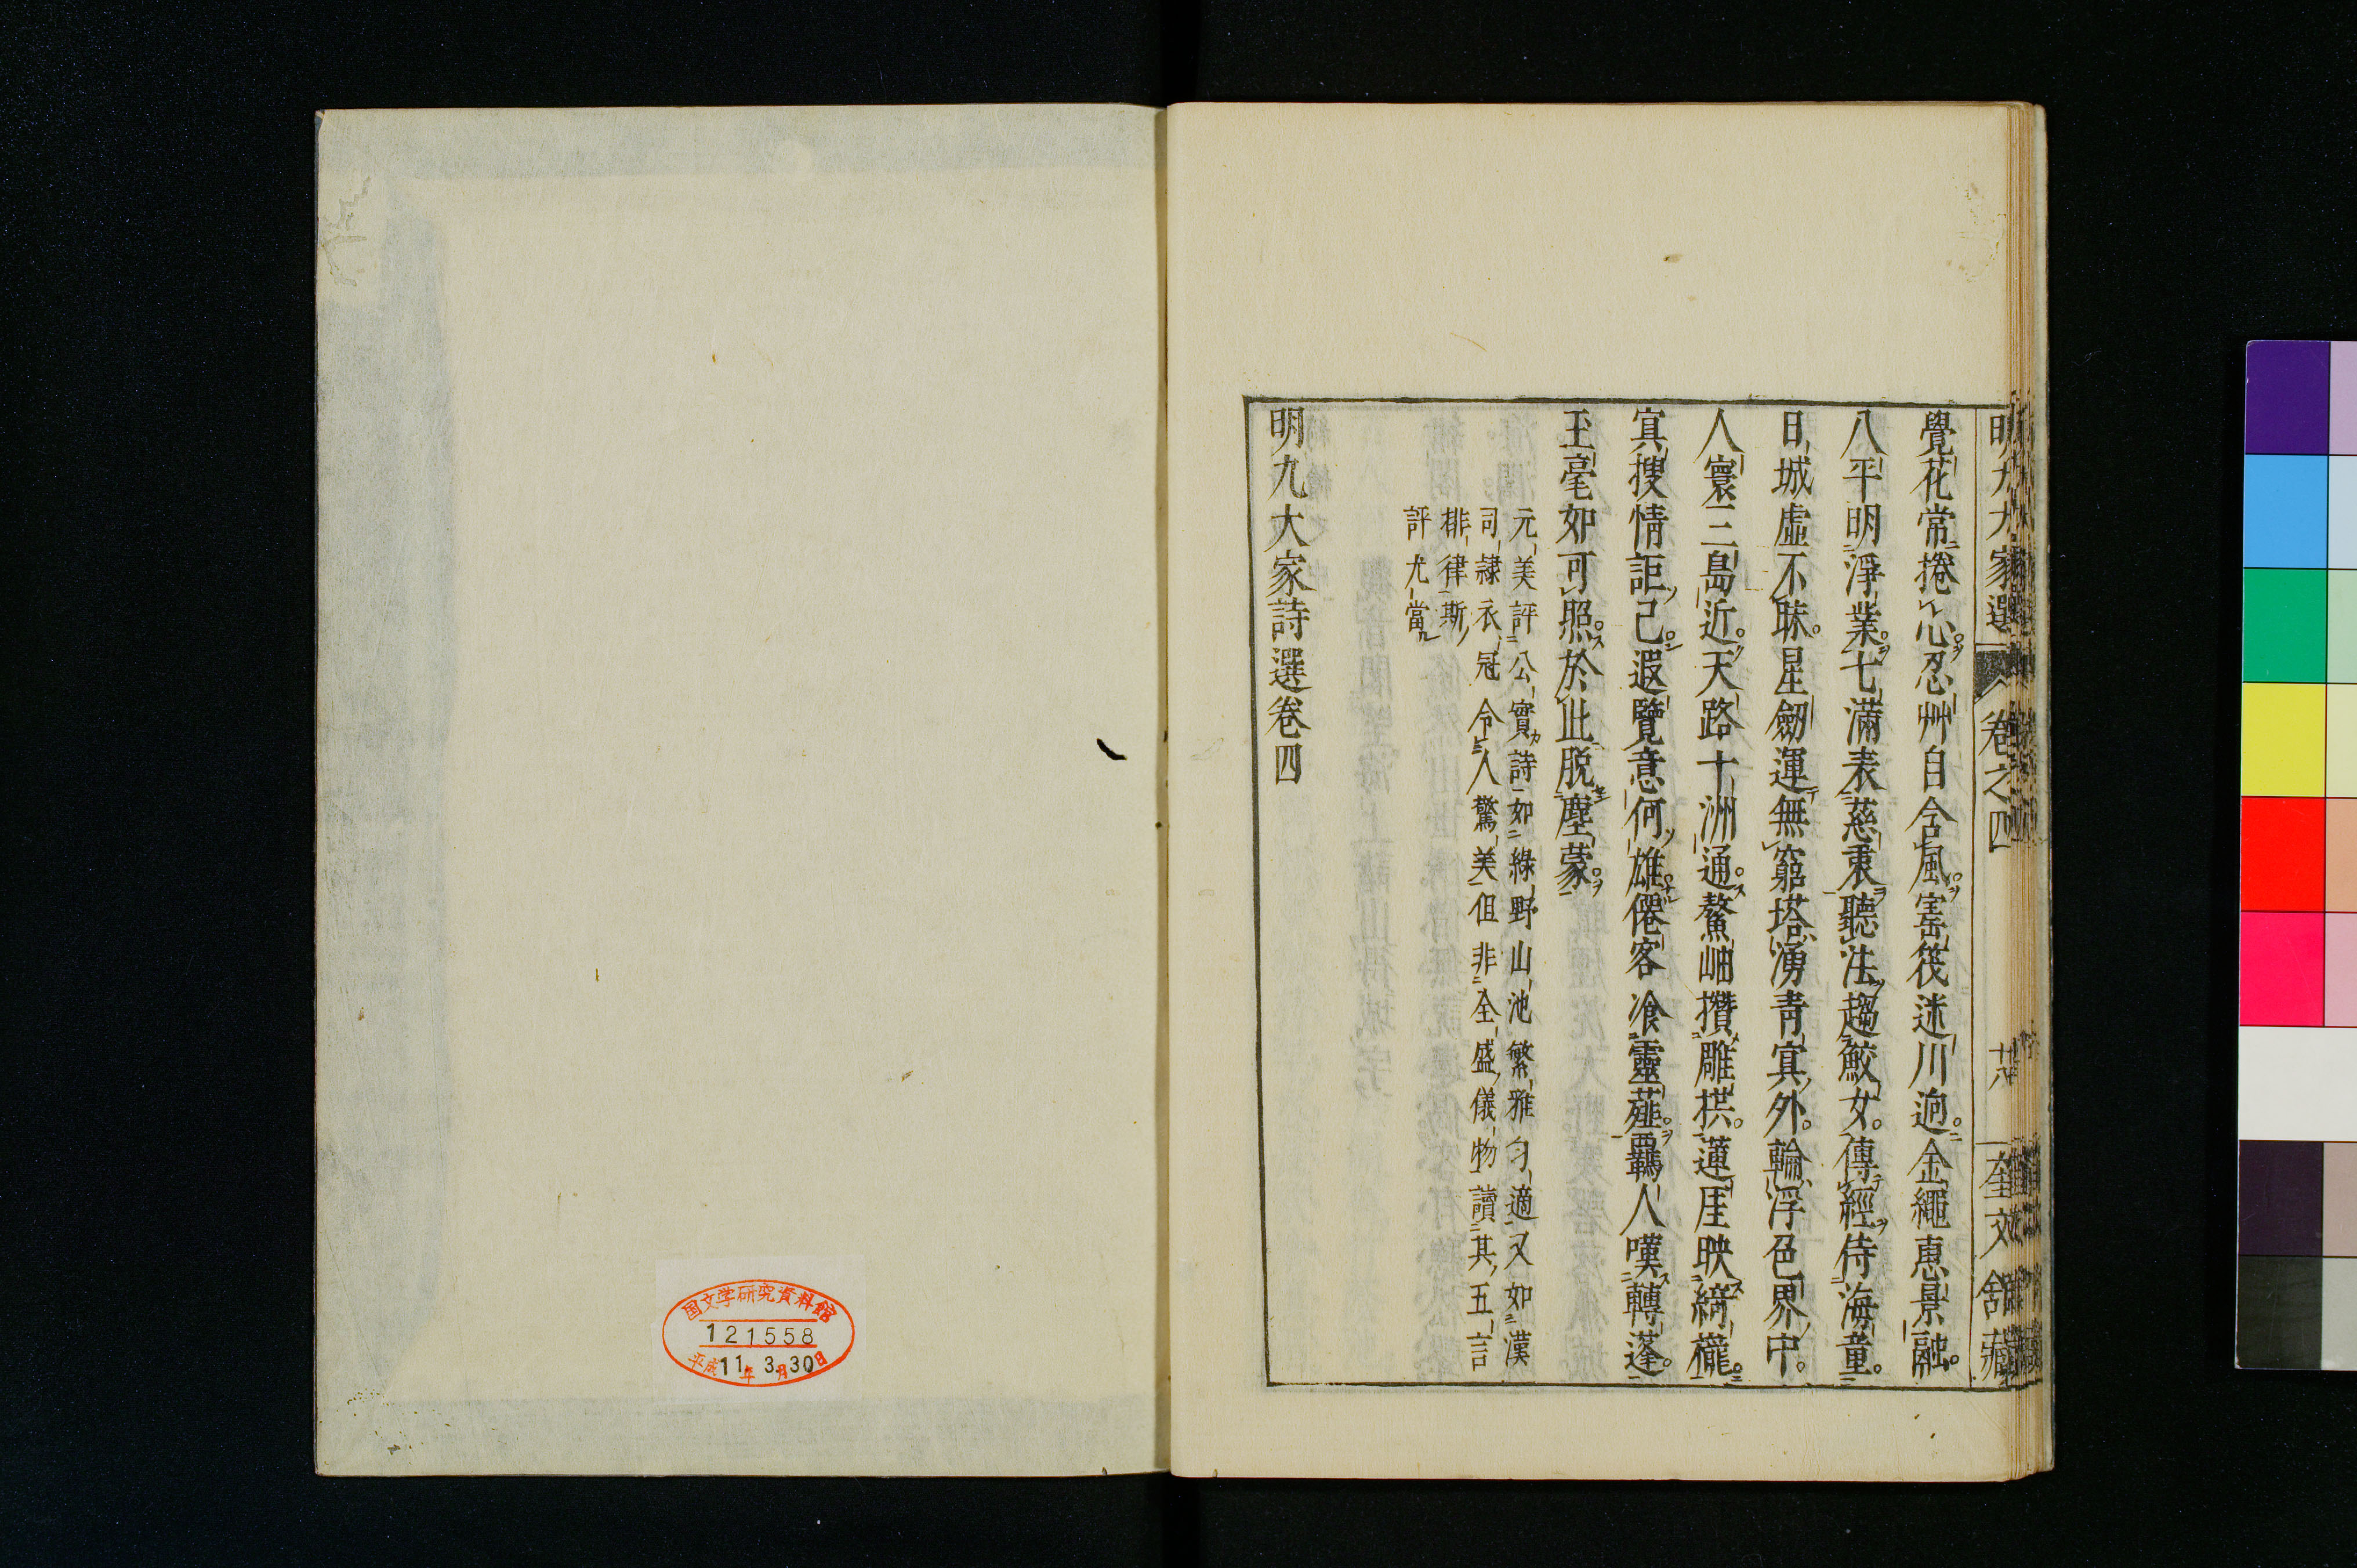 明九大家選 卷之四 廿八 奎文舘藏
覺花常捲心忍艸自含風寳筏迷川逈金繩惠景融
八平明淨業七滿表慈衷聽法趨鮫女傳經侍海童
日城虛不昧星劒運無窮塔湧青冥外輪浮色界中
人寰三島近天路十洲通鰲岫攢雕栱蓮厓映綺櫳
冥搜情詎已遐覽意何雄僊客飡靈薤羈人嘆轉蓬
玉毫如可照於此脱塵蒙
元美評公實詩如綠野山池繁雅匀適又如漢
司隷衣冠令人驚美但非全盛儀物讀其五言
排律斯
評尤當
明九大家詩選卷四
国文学研究資料館
121558
平成11年3月30日